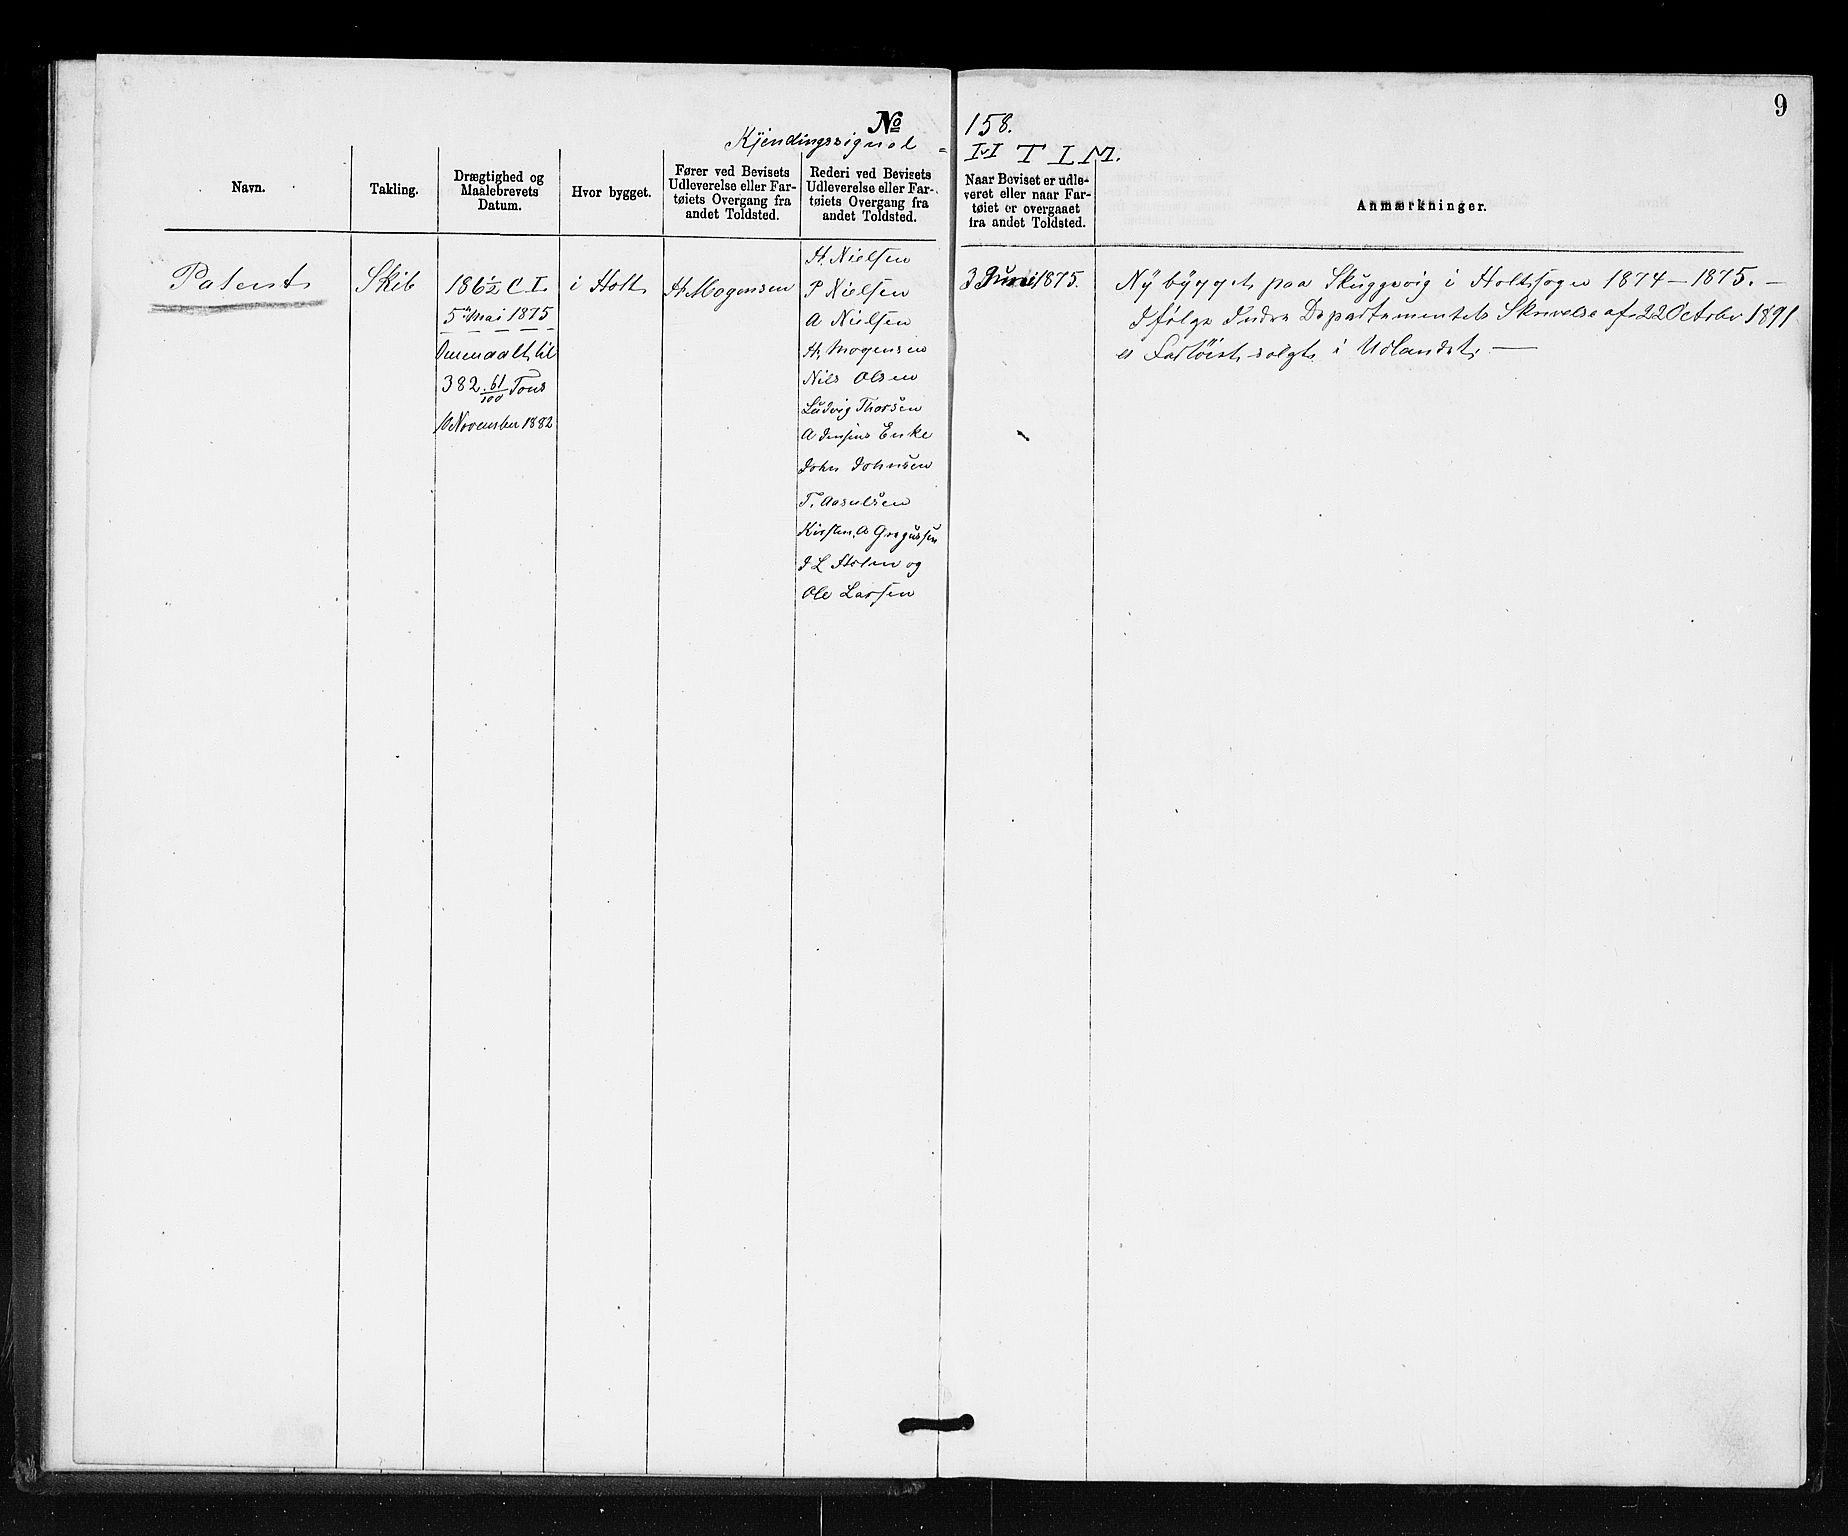 9
No 158.
Kjendingssignal = M T L M.
Navn.
Takling.
Drægtighed og
Maalebrevets
Datum.
Hvor bygget.
Fører ved Bevisets
Udleverelse eller Far-
tøiets Overgang fra
andet Toldsted.
Rederi ved Bevisets
Udleverelse eller Far-
tøiets Overgang fra
andet Toldsted.
Naar Beviset er udle-
veret eller naar Far-
tøiet er overgaaet
fra andet Toldsted.
Anmærkninger.
Patent
Skib
186½ C. L.
5 Mai 1875
Ommaalt til
382 61/100 Tons
10 November 1882
i Holt
H Mogensen
H. Nielsen
P Nielsen
A Nielsen
H. Mogensen
Nils Olsen
Ludvig Thorsen
A Jensens Enke
John Johnsen
T. Aasulsen
Kirsten A Gregussen
J L Holm og
Ole Larsen
3 Juni 1875.
Nybygget paa Skuggevig i Holt sogn 1874 – 1875. –
Ifølge Indre Departementets Skrivelse af 22 October 1891
er Fartøiet solgt i Udlandet. —